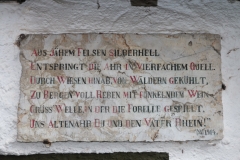 Aus jähem Felsen silberhell
Entspringt die Ahr in vierfachem Quell.
Durch Wiesen hinab, von Wäldern gekühlt,
Zu Bergen voll Reben mit funkelndem Wein.
Grüss Welle, in der die Forelle gespielt,
Uns Altenahr und den Vater Rhein!